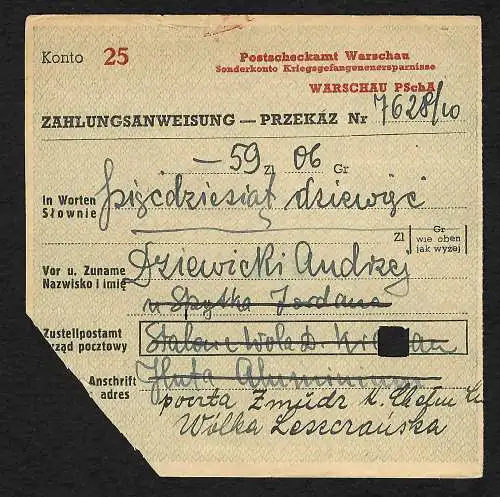 Konto 25
Postscheckamt Warschau
Sonderkonto Kriegsgefangenenersparnisse
WARSCHAU PSchA
ZAHLUNGSANWEISUNG — PRZEKAZ Nr 7628/10
— 59 Zł 06 Gr
In Worten
Słownie pięćdziesiąt dziewięć
Zł Gr
wie oben
jak wyżej
Vor u. Zuname
Nazwisko i imię Dziewicki Andrzej
u Spytka Jordana
Zustellpostamt
rząd pocztowy Stalowa Wola D.
Anschrift
adres Huta Aluminium
poczta Żmudź k. Chełm
Wólka Leszczańska